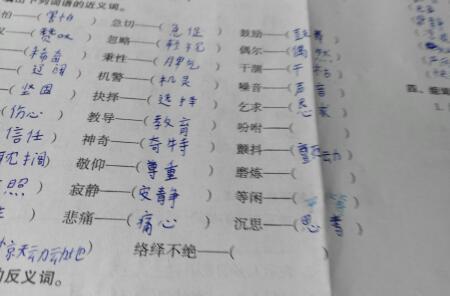 出下列词语的近义词。
怕——(害怕) 急切——(急促) 鼓励——(
——(赞叹) 忽略——( 偶尔——(偶然)
——(稀奇) 秉性——(脾气) 干涸——(干枯)
——(辽阔) 机警——(机灵) 噪音——(声音)
——(坚固) 抉择——(选择) 乞求——(恳求)
(伤心) 教导——(教育) 吩咐——( )
(信任) 神奇——(奇特) 颤抖——(颤动)
耽搁) 敬仰——(尊重) 磨炼——( )
照) 寂静——(安静) 等闲——(
) 悲痛——(痛心) 沉思——(思考)
惊天动地) 络绎不绝——(
的反义词。
四、
1.